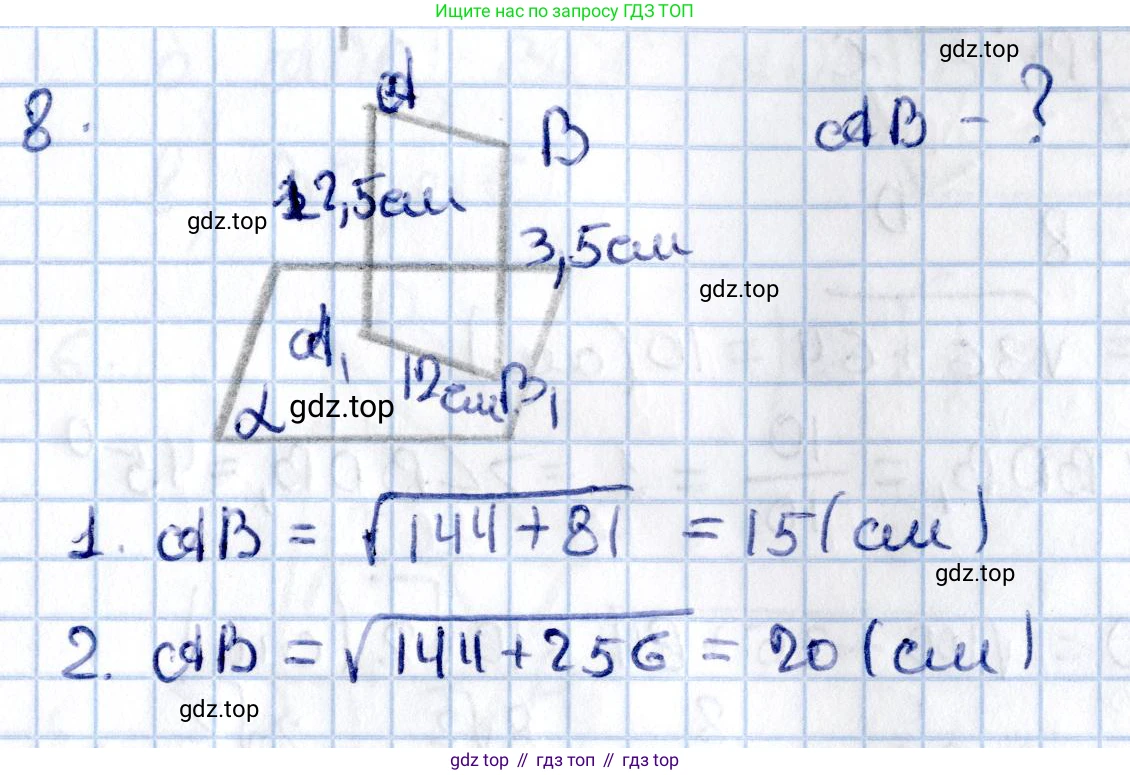 Ищите нас по запросу ГДЗ ТОП
gdz.top
8.
A
B
AB - ?
12,5см
gdz.top
3,5см
gdz.top
A₁
12см
B₁
α
gdz.top
1. AB = √144+81 = 15 (см)
gdz.top
2. AB = √144+256 = 20 (см)
gdz.top
gdz top // гдз топ // gdz top